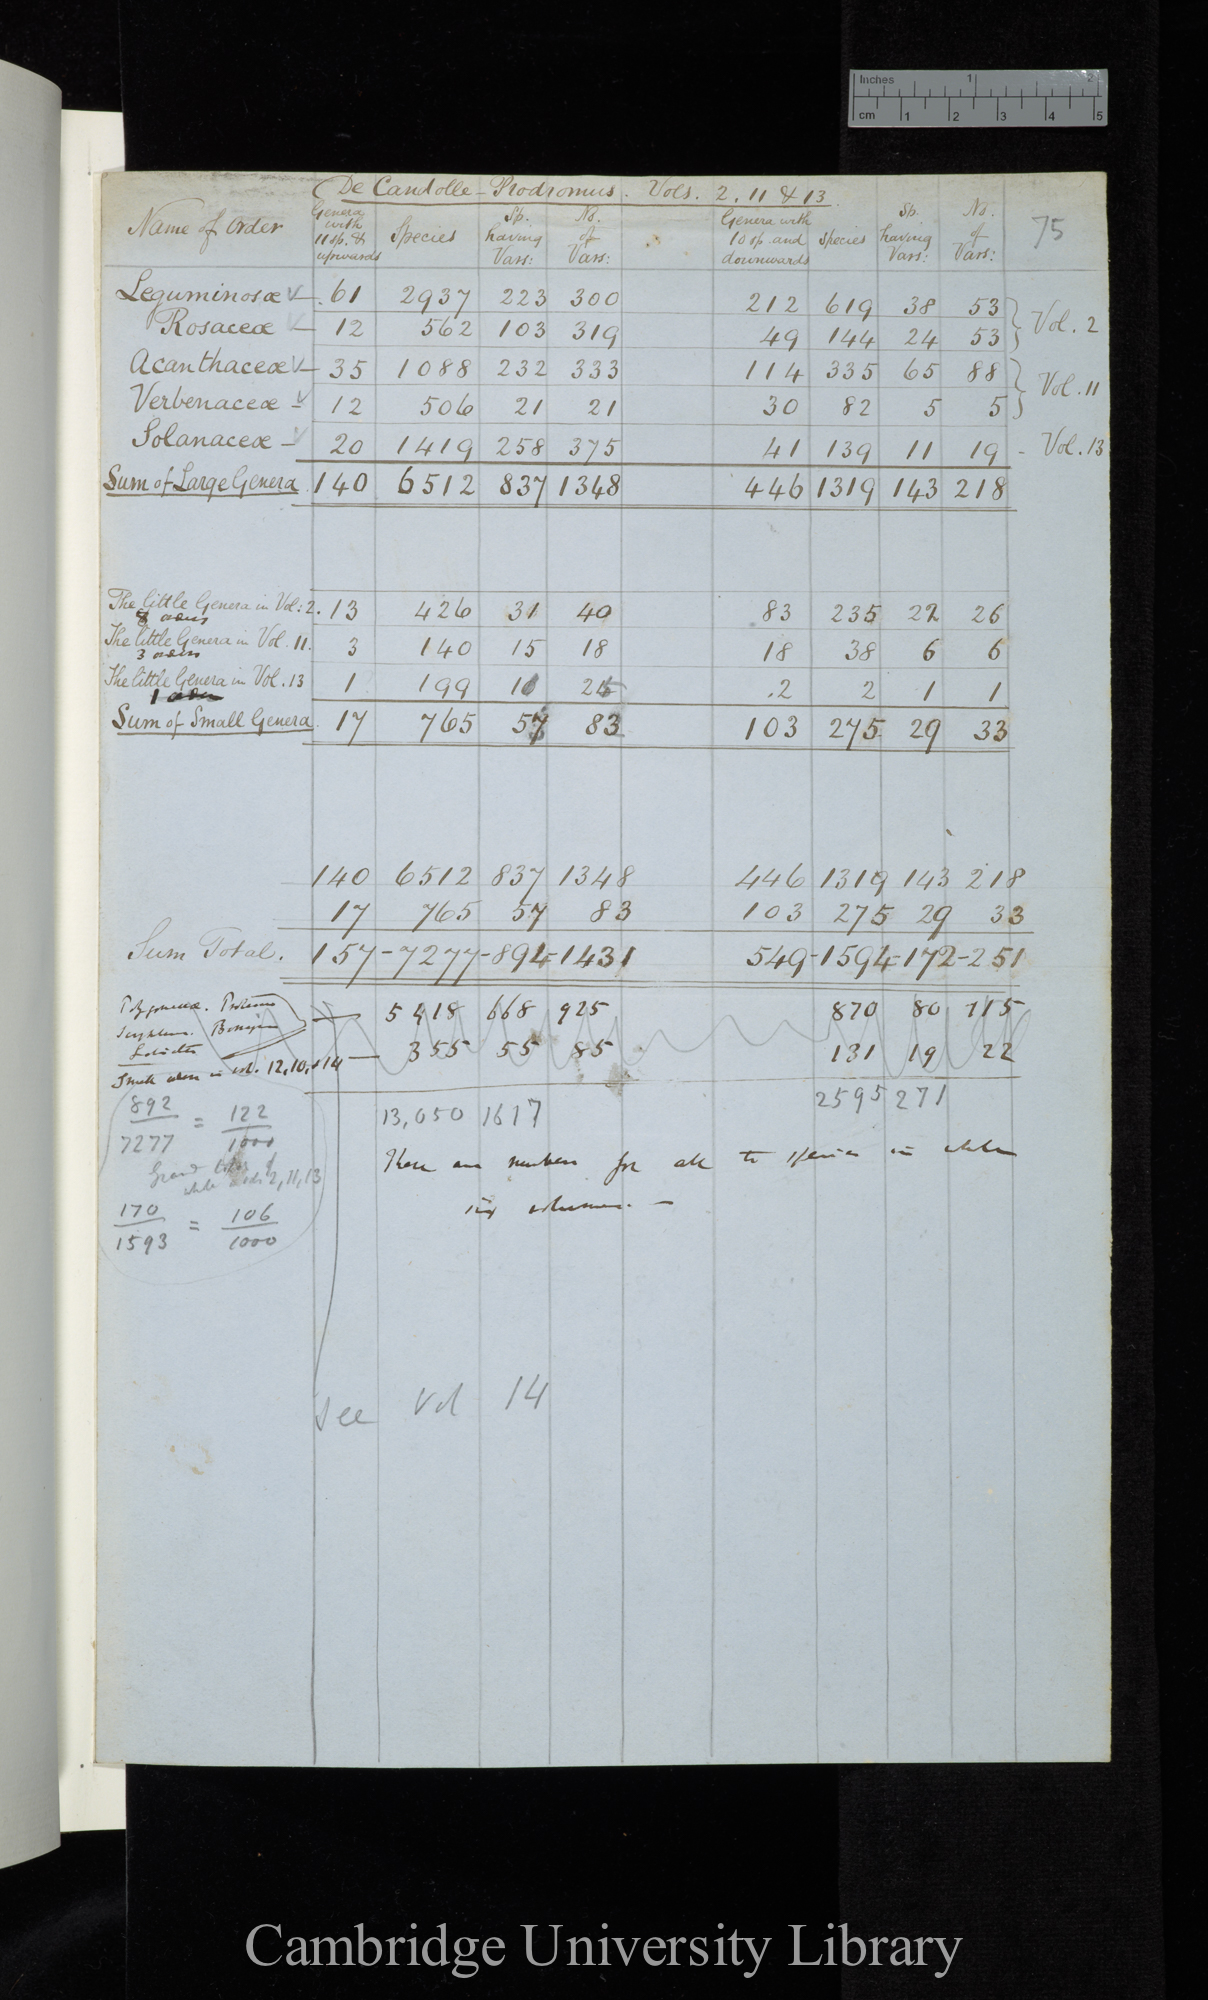 Inches 1 2
cm 1 2 3 4 5
De Candolle - Prodromus. Vols. 2, 11 & 13.
Name of Order | Genera with 11 sp. & upwards | Species | Sp. having Vars: | No. of Vars: | Genera with 10 sp. and downwards | Species | Sp. having Vars: | No. of Vars: | 75
Leguminosæ 61 2937 223 300 212 619 38 53
Rosaceæ 12 562 103 319 49 144 24 53 Vol. 2
Acanthaceæ 35 1088 232 333 114 335 65 88
Verbenaceæ 12 506 21 21 30 82 5 5 Vol. 11
Solanaceæ 20 1419 258 375 41 139 11 19 - Vol. 13
Sum of Large Genera 140 6512 837 1348 446 1319 143 218
The little Genera in Vol: 2. 13 426 31 40 83 235 22 26
8 orders
The little Genera in Vol. 11. 3 140 15 18 18 38 6 6
3 orders
The little Genera in Vol. 13 1 199 25 2 2 1 1
1 order
Sum of Small Genera 17 765 57 83 103 275 29 33
140 6512 837 1348 446 1319 143 218
17 765 57 83 103 275 29 33
Sum Total. 157-7277-894-1431 549-1594-172-251
Polygoneæ. 5418 668 925 870 80 115
355 55 85 131 19 22
Small orders in vol. 12, 10, & 14
892/7277 = 122/1000
13,050 1617 2595 271
Grand total of
whole orders 2, 11, 13
These are numbers for all the species in whole
six volumes. —
170/1593 = 106/1000
See Vol 14
Cambridge University Library